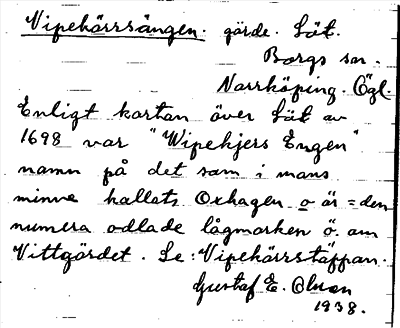 Vipekärrsängen. gärde. Lät.
Borgs sn.
Norrköping. Ögl.
Enligt kartan över Lät av
1698 var "Wipekjers Engen"
namn på det som i mans
minne kallats Oxhagen o är = den
numera odlade lågmarken ö. om
Vittgärdet. Se: Vipekärrstäppan.
Gustaf E. Olsson
1938.